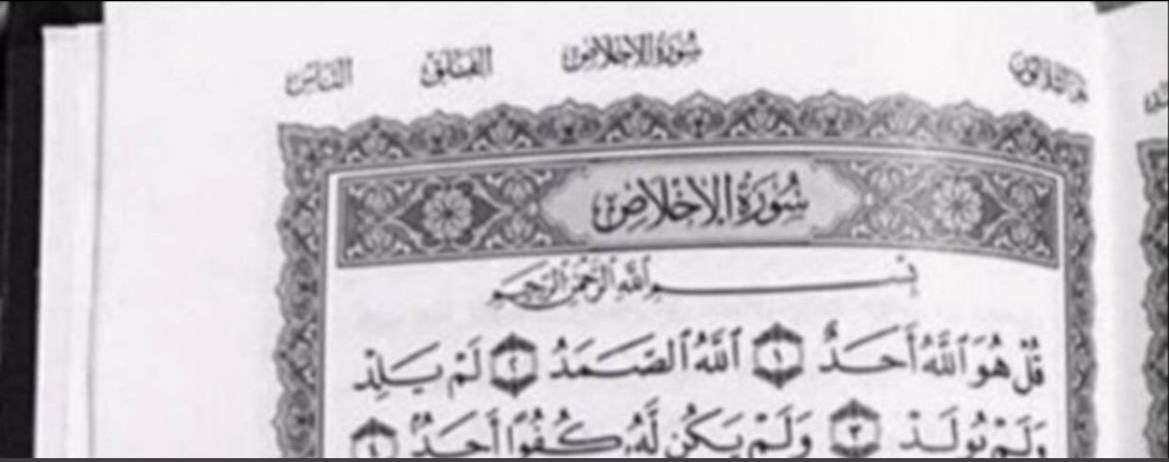 الناس الفلق سورة الإخلاص جزء الثلاثون
سُورَةُ الإِخْلَاصِ
بِسْمِ اللَّهِ الرَّحْمَٰنِ الرَّحِيمِ
قُلْ هُوَ ٱللَّهُ أَحَدٌ ١ ٱللَّهُ ٱلصَّمَدُ ٢ لَمْ يَلِدْ
وَلَمْ يُولَدْ ٣ وَلَمْ يَكُن لَّهُۥ كُفُوًا أَحَدٌۢ ٤